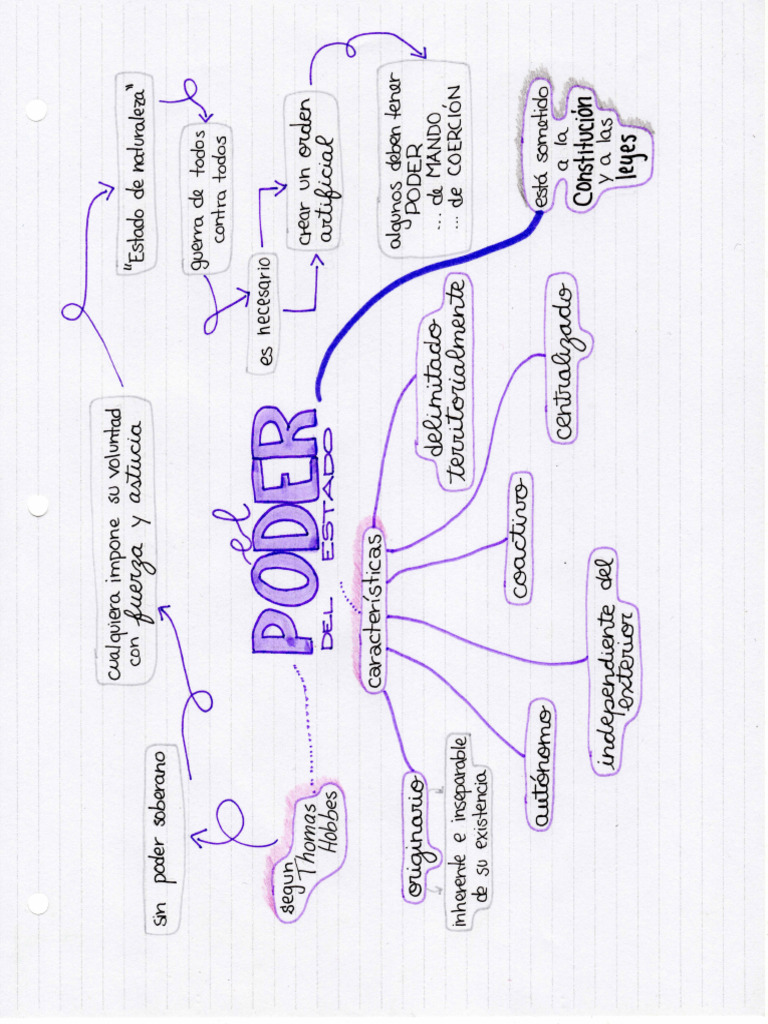 el
PODER
DEL ESTADO
segun
Thomas
Hobbes
sin poder soberano
cualquiera impone su voluntad
con fuerza y astucia
"Estado de naturaleza"
guerra de todos
contra todos
es necesario
crear un orden
artificial
algunos deben tener
PODER
... de MANDO
... de COERCIÓN
está sometido
a la
Constitución
y a las
leyes
características
originario
inherente e inseparable
de su existencia
autónomo
independiente del
exterior
coactivo
centralizado
delimitado
territorialmente